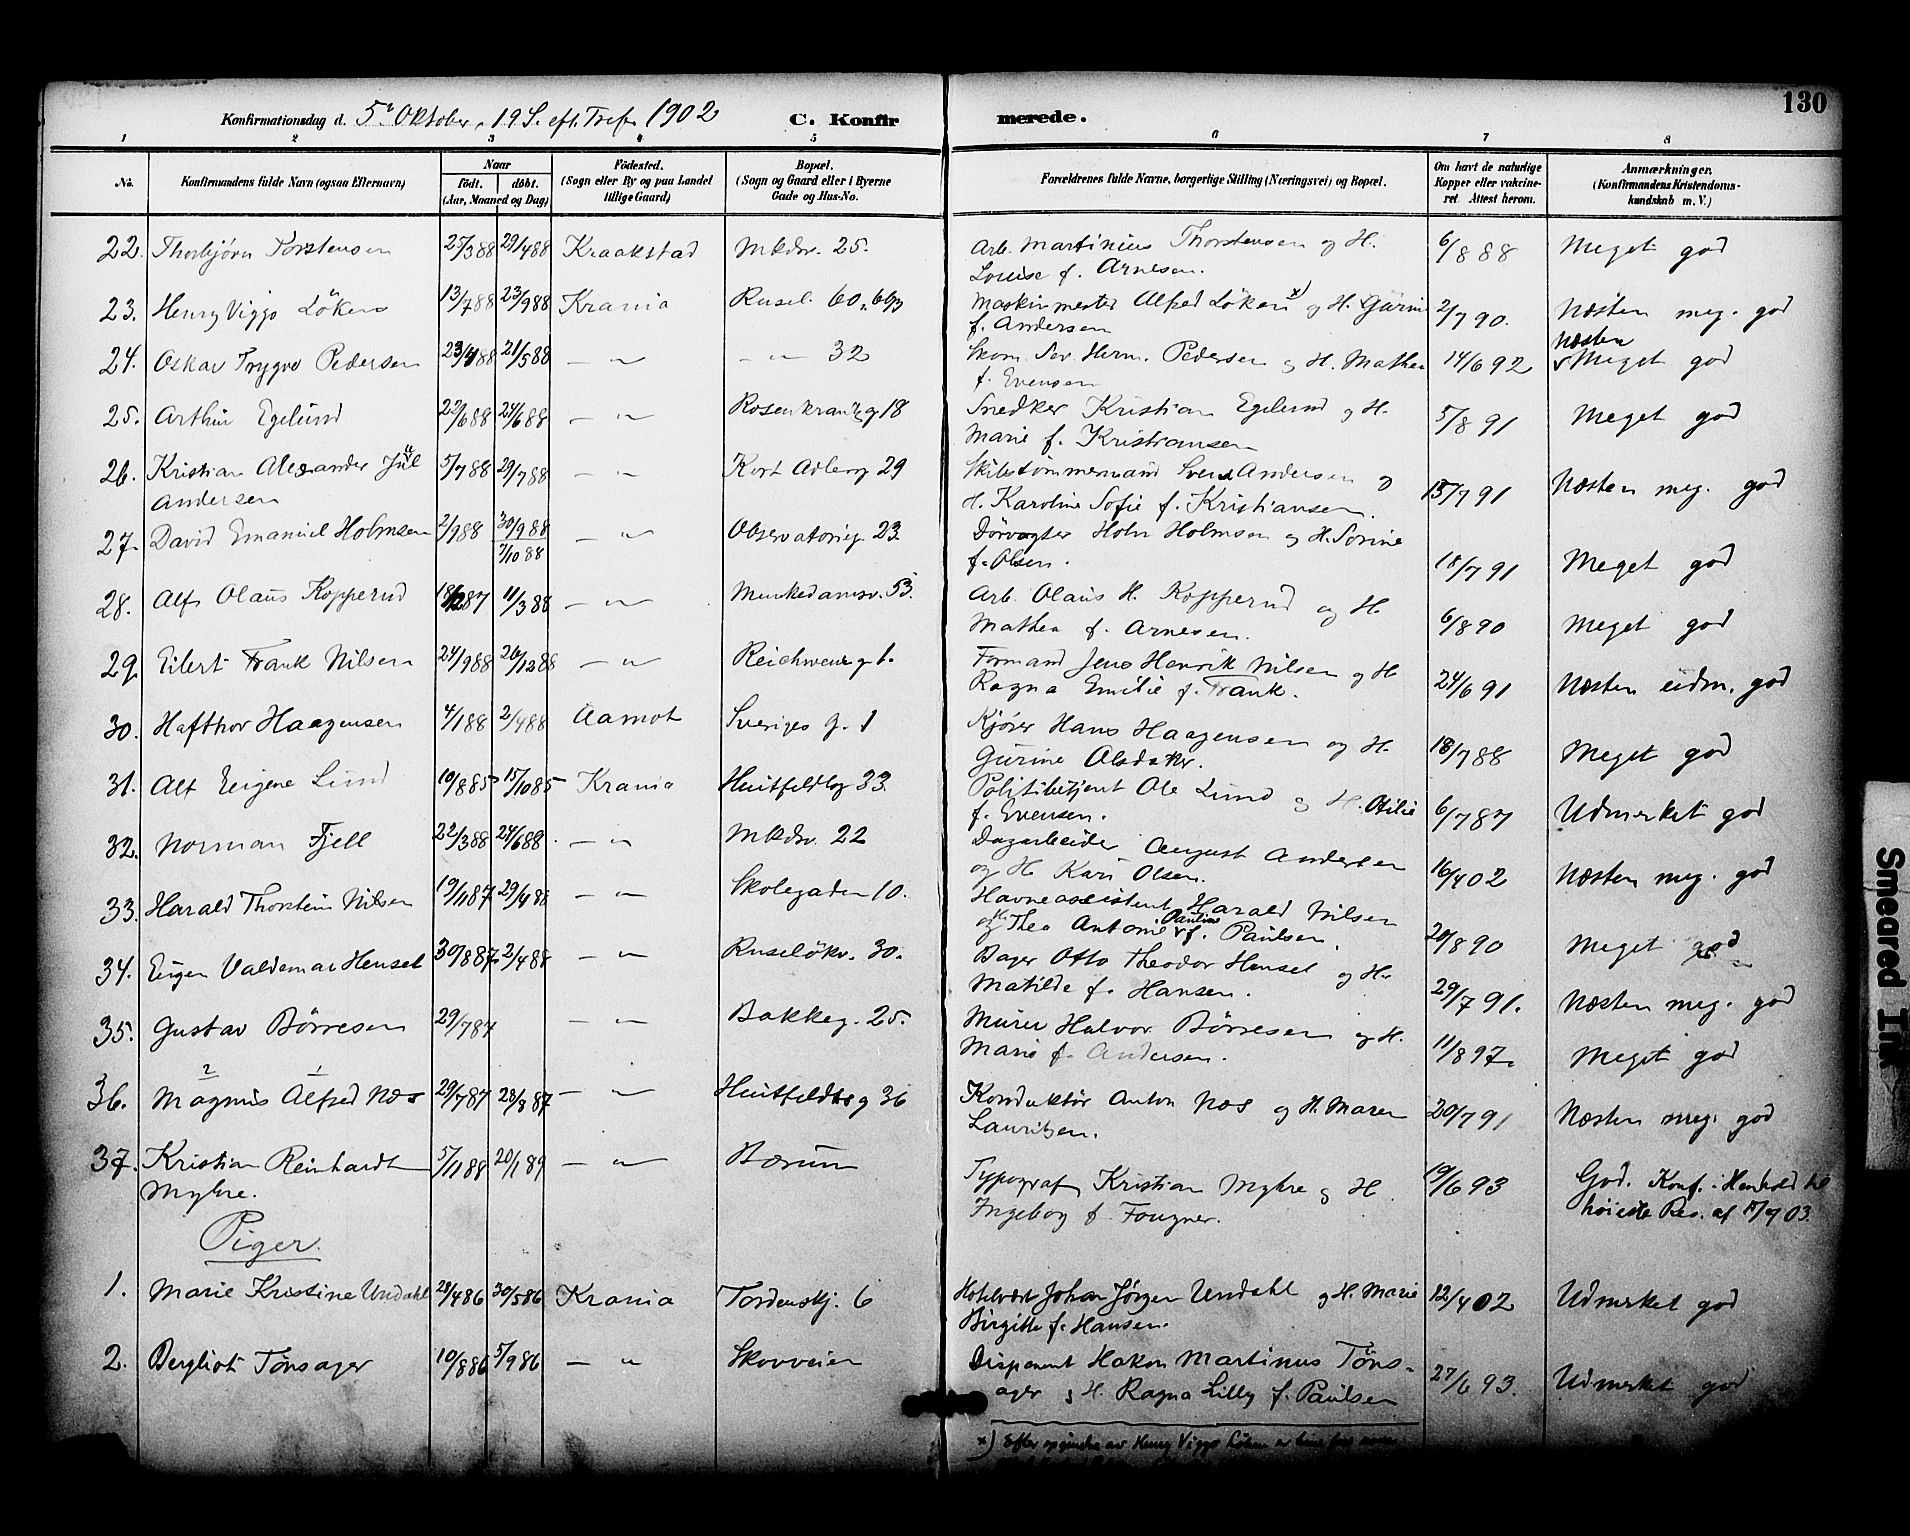 130
Konfirmationsdag d. 5te Oktober, 19 S. eft. Tref. 1902 C. Konfirmerede.
1 2 3 4 5 6 7 8
No. Konfirmandens fulde Navn (ogsaa Efternavn) Naar födt. döbt. (Aar, Maaned og Dag) Födested. (Sogn eller By og paa Landet tillige Gaard) Bopæl. (Sogn og Gaard eller i Byerne Gade og Hus-No. Forældrenes fulde Navne, borgerlige Stilling (Næringsvei) og Bopæl. Om havt de naturlige Kopper eller vakcineret. Attest herom. Anmærkninger. (Konfirmandens Kristendomskundskab m. V.)
22. Thorbjørn Torstensen 25/3 88 29/4 88 Kraakstad Mkdv. 25. Arb. Martinius Thorstensen og H. 6/8 88 Meget god
Louise f. Arnesen.
23. Henry Viggo Löken 13/7 88 23/9 88 Krania Rusel. 60, Maskinmester Alfred Löken x) og H. Gurine 2/7 90. Næsten meg. god
f. Andersen
24. Oskar Trygve Pedersen 23/4 88 21/5 88 — " — — " — 32 Skom. Sev. Herm. Pedersen og H. Mathea 14/6 92 næsten Meget god
f. Evensen
25. Arthur Egelund 22/6 88 24/6 88 — " — Rosenkrantzg 18 Snedker Kristian Egelund og H. 5/8 91 Meget god
Marie f. Kristiansen
26. Kristian Alexander Jul 5/7 88 29/7 88 — " — Kort Adlerg 29 Skibstømmermand Svend Andersen og 15/7 91 Næsten meg. god
Andersen H. Karoline Sofie f. Kristiansen.
27. David Emanuel Holmsen 2/9 88 30/9 88 — " — Observatorieg. 23 Dörvagter Holm Holmsen og H. Sorine 18/7 91 Meget god
7/10 88 f. Olsen.
28. Alf Olaus Kopperud 18/12 87 11/3 88 — " — Munkedamsv. 53. Arb. Olaus H. Kopperud og H. 6/8 90 Meget god
Mathea f. Arnesen.
29. Eilert Frank Nilsen 24/9 88 26/12 88 — " — Reichweins g. 1. Formand Jens Henrik Nilsen og H. 24/6 91 Næsten udm. god
Ragna Emilie f. Frank.
30. Hafthor Haagensen 4/1 88 2/4 88 Aamot Sveriges g. 1 Kjører Hans Haagensen og H. 18/7 88 Meget god
Gurine Alsdaker.
31. Alf Eugene Lund 10/8 85 15/10 85 Krania Huitfeldtsg 33 Politibetjent Ole Lund og H. Otilie 6/7 87 Udmerket god
f. Evensen.
32. Norman Fjell 22/3 88 24/6 88 — " — Mkdv. 22 Dagarbeider August Andersen 16/4 02 Næsten meg. god
og H. Kari Olsen.
33. Harald Thorstein Nilsen 19/11 87 29/4 88 — " — Skolegaden 10. Havneassistent Harald Nilsen 20/8 90 Meget god
og H. Thea Antonie Pauline f. Paulsen.
34. Eugen Valdemar Hensel 30/8 87 2/4 88 — " — Ruselökv. 30. Bager Otto Theodor Hensel og H. 29/7 91. Næsten meg. god
Matilde f. Hansen.
35. Gustav Börresen 29/7 87 — " — Bakkeg. 25. Murer Halvor Börresen og H. 11/8 97. Meget god
Marie f. Andersen.
2 1
36. Magnus Alfred Næs 29/7 87 28/8 87 — " — Huitfeldtsg 36 Konduktør Anton Næs og H. Maren 20/7 91 Næsten meg. god
Lauritzen.
37. Kristian Reinhardt 5/11 88 20/1 89 — " — Bærum Typograf Kristian Myhre og H. 19/6 93 God. Konf. i Henhold til
Myhre. Ingeborg f. Fougner. høieste Res. af 17/9 03.
Piger.
1. Marie Kristine Undahl 28/4 86 30/5 86 Krania Tordenskj. 6 Hotelvært Johan Jørgen Undahl og H. Marie 12/4 02 Udmerket god
Birgitte f. Hansen.
2. Bergliot Tönsager 10/8 86 5/9 86 — " — Skovveien Disponent Hakon Martinus Töns- 27/6 93. Udmerket god
ager og H. Ragna Lilly f. Paulsen
x) Efter opgivelse av Henry Viggo Löken er hans far
Smeared Ink